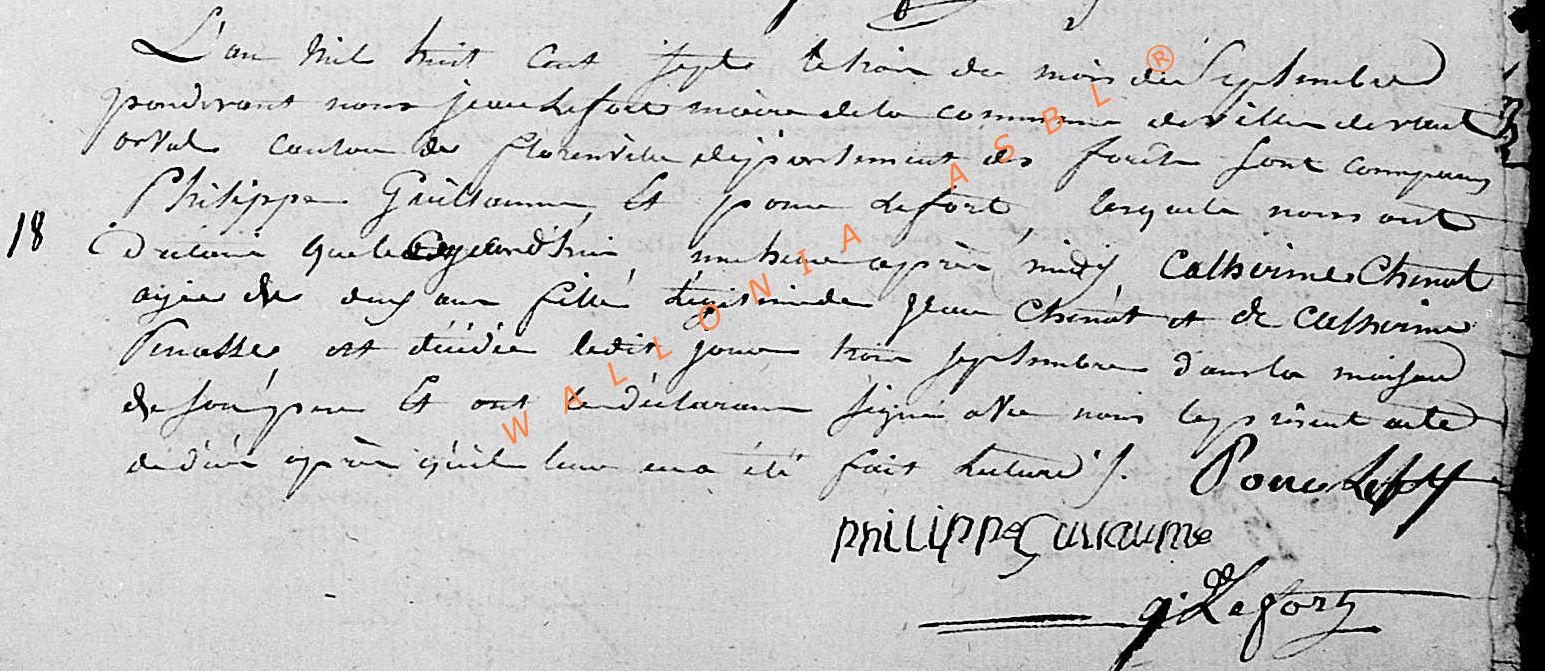 L'an mil huit cent sept le trois du mois de Septembre
pardevant nous jean Lefort maire de la commune de villers devant
orval canton de florenville département des forêts sont comparus
Philippe Guillaume, et ponce Lefort, lesquels nous ont
18
Déclaré que le aujourd'hui une heure après midy Catherine Chenot
agée de ans fille légitime de jean Chenot et de Catherine
Pinasse est décédée ledit jour trois septembre dans la maison
de son père Et ont les déclarans signé avec nous le présent acte
de décès après qu'il leur en a été fait lecture /.
Ponce Lefort
philippe Guillaume
j. Lefort
WALLONIA ASBL ®